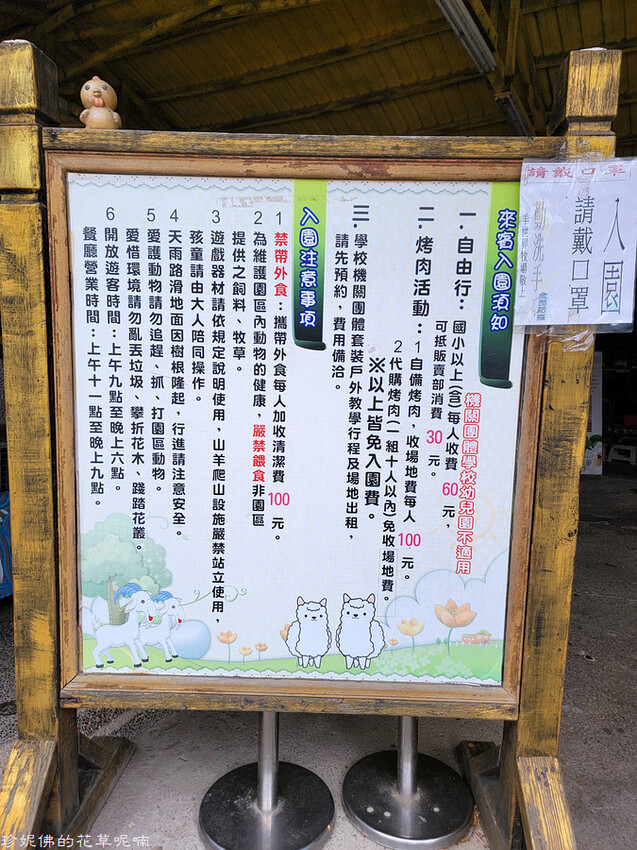 請戴口罩
入園
請戴口罩
勤洗手
來賓入園須知
一.自由行：國小以上(含)每人收費60元，
可抵販賣部消費30元。
機關團體學校幼兒園不適用
二.烤肉活動：1自備烤肉，收場地費每人100元。
2代購烤肉(一組十人以內)免收場地費。
※以上皆免入園費。
三.學校機關團體套裝戶外教學行程及場地出租，
請先預約，費用備洽。
入園注意事項
1禁帶外食：攜帶外食每人加收清潔費100元。
2為維護園區內動物的健康，嚴禁餵食非園區
提供之飼料、牧草。
3遊戲器材請依規定說明使用，山羊爬山設施嚴禁站立使用，
孩童請由大人陪同操作。
4天雨路滑地面因樹根隆起，行進請注意安全。
5愛護動物請勿追趕、抓、打園區動物。
愛惜環境請勿亂丟垃圾、攀折花木、踐踏花叢。
6開放遊客時間：上午九點至晚上六點。
餐廳營業時間：上午十一點至晚上九點。
珍妮佛的花草呢喃